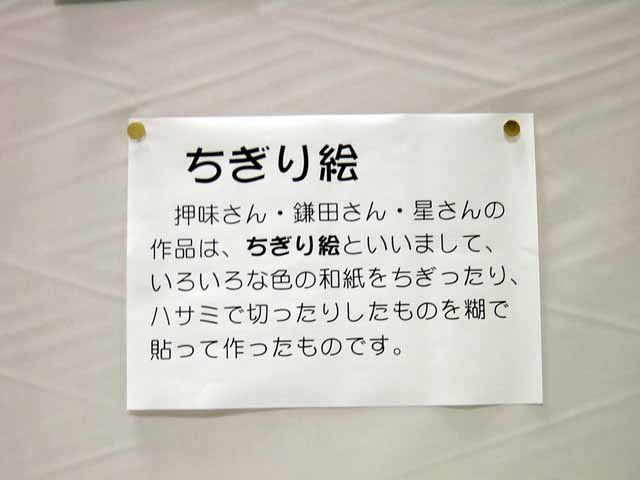 ちぎり絵
押味さん・鎌田さん・星さんの
作品は、ちぎり絵といいまして、
いろいろな色の和紙をちぎったり、
ハサミで切ったりしたものを糊で
貼って作ったものです。